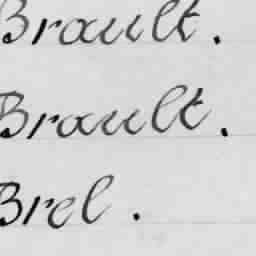 Brault.
Brault.
Brel.